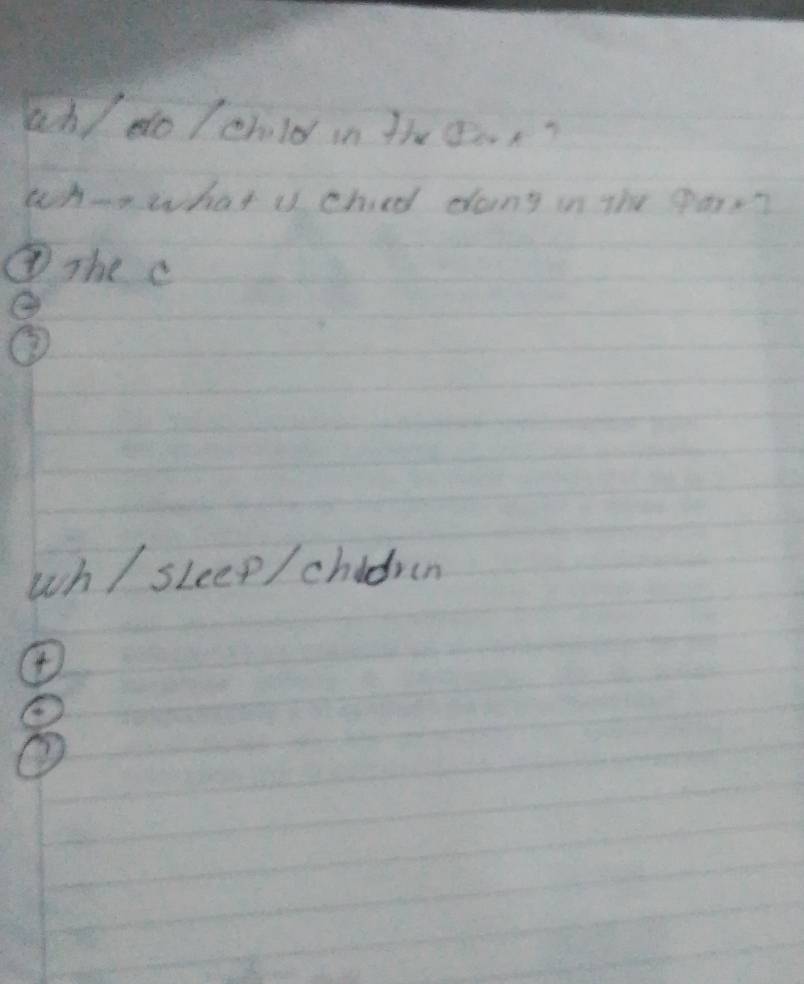 wh/ do / child in the Park?
wh→ what is chied doing in the Park?
⊕ The c
⊖
?
wh / sleep / children
⊕
⊖
?